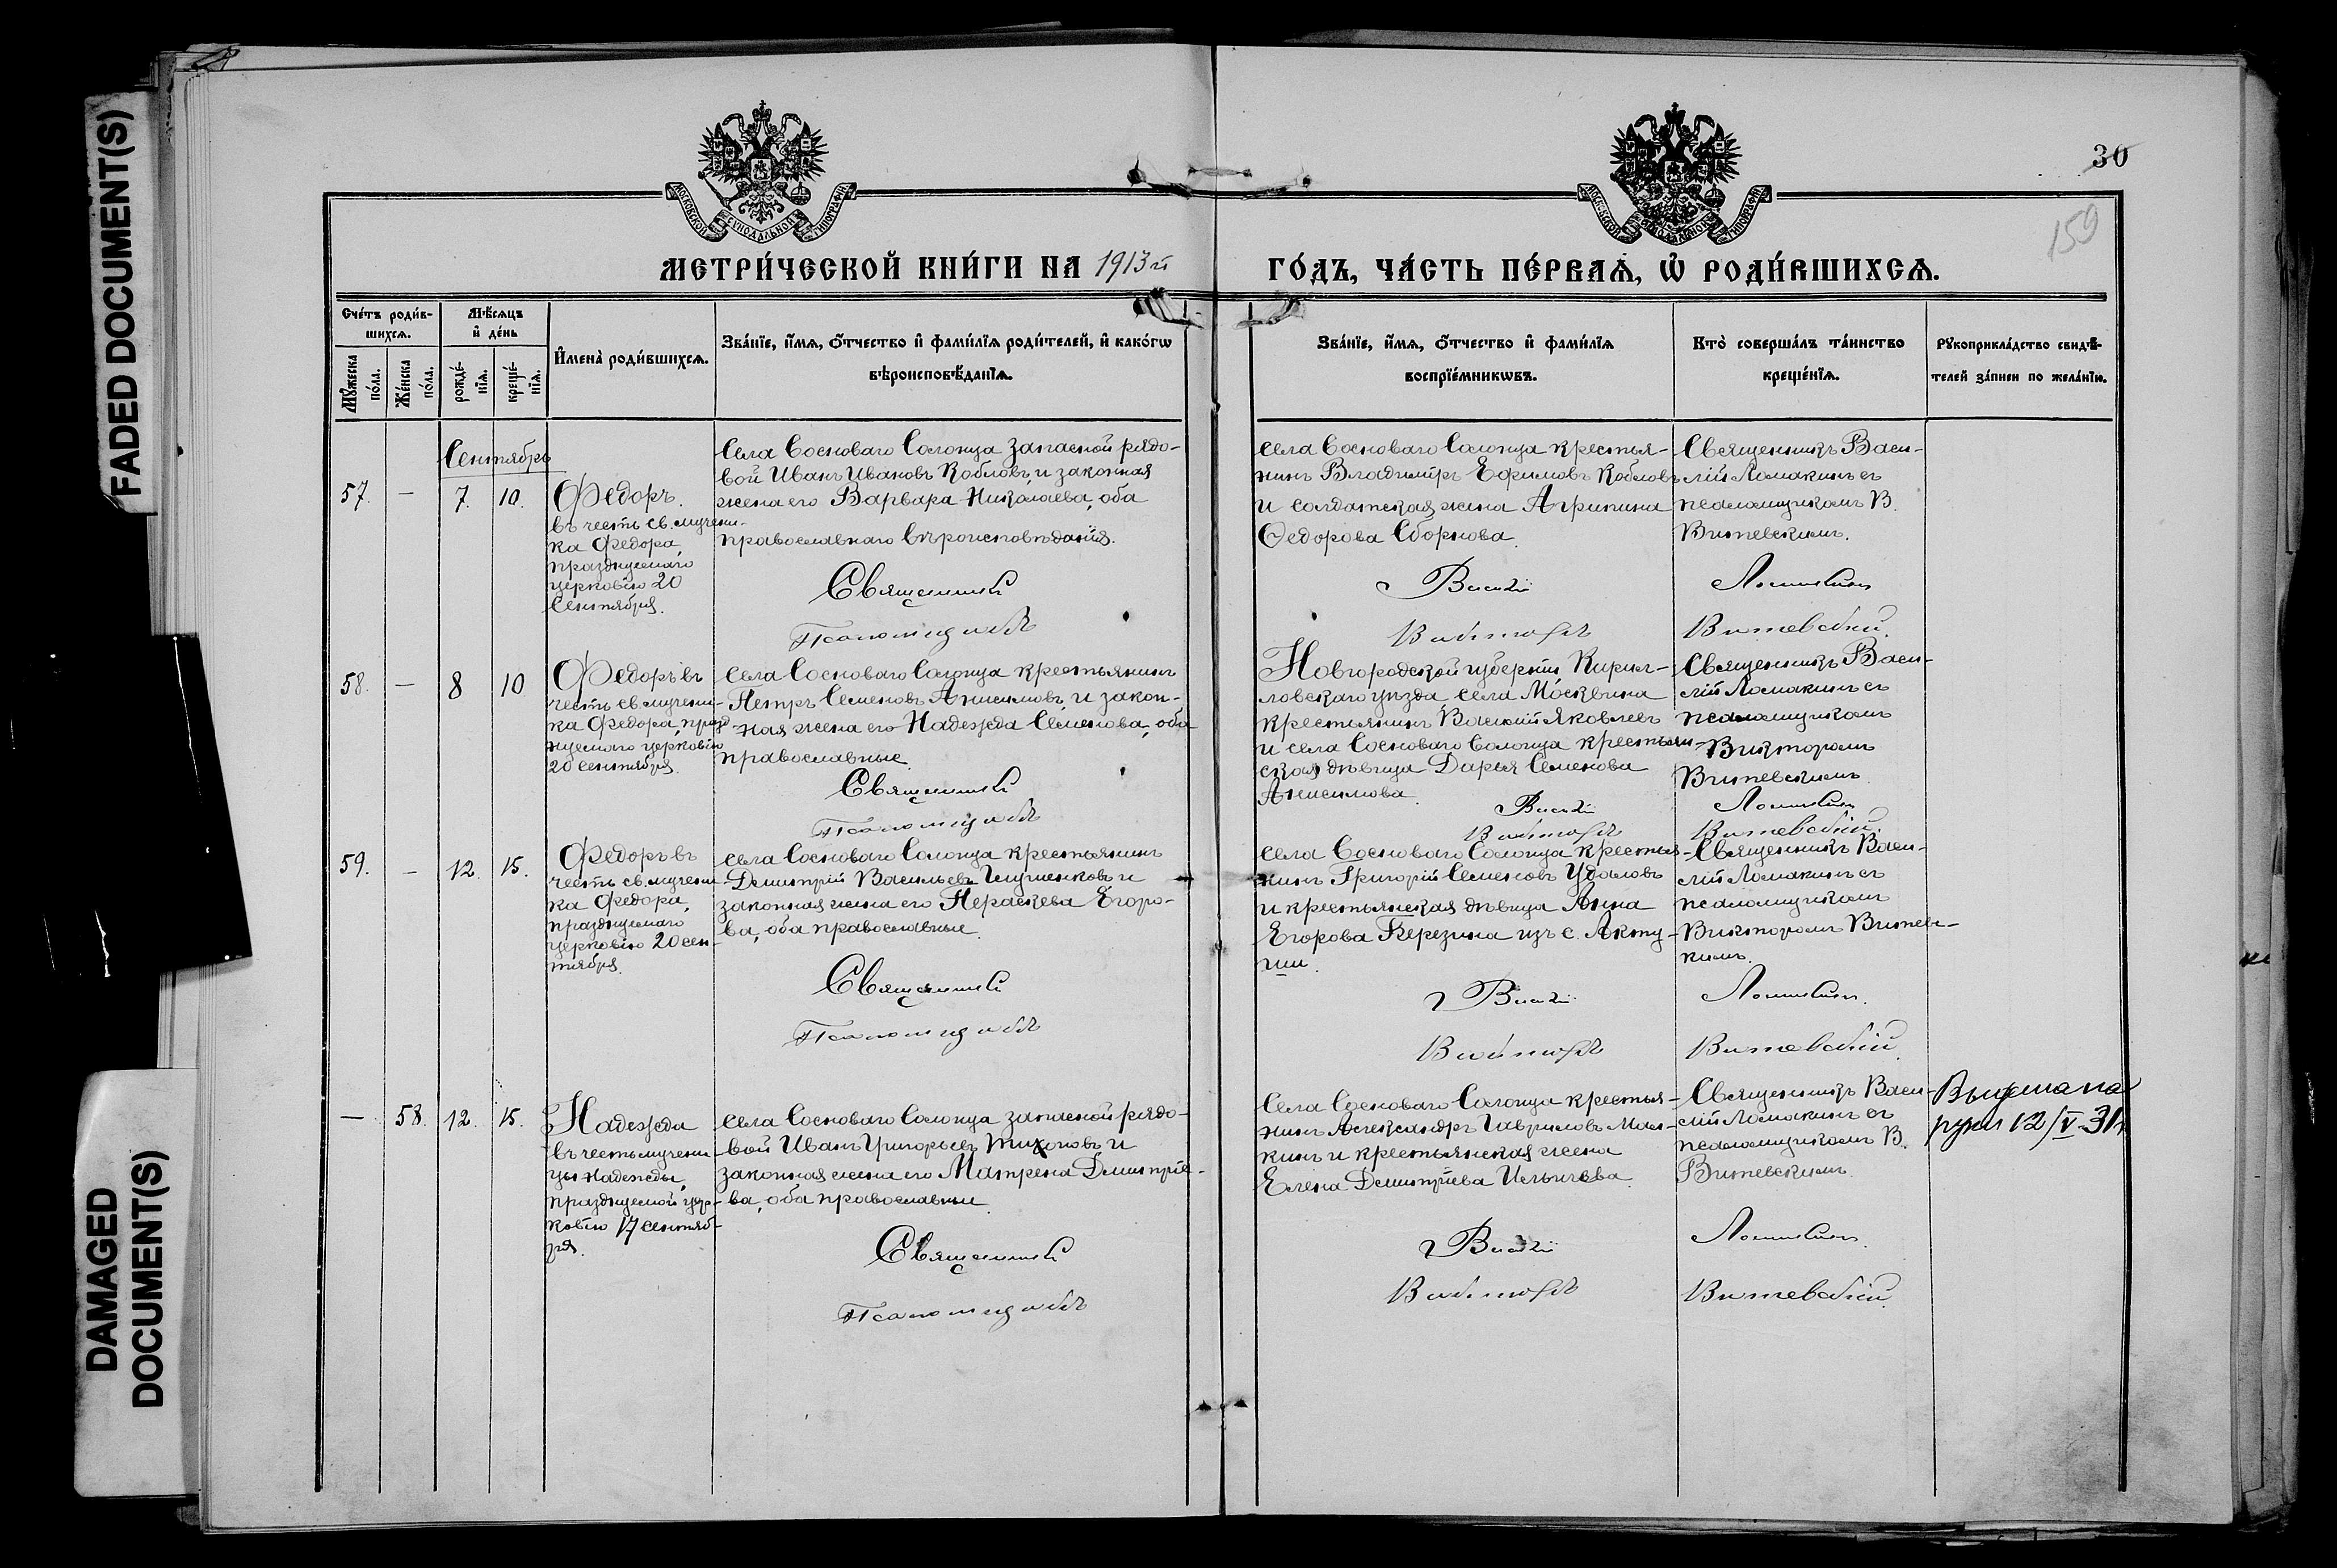 FADED DOCUMENT(S)
DAMAGED
DOCUMENT(S)
30
159
МОСКОВСКОЙ СУНОДАЛЬНОЙ ТИПОГРАФІИ
МОСКОВСКОЙ СУНОДАЛЬНОЙ ТИПОГРАФІИ
МЕТРИ́ЧЕСКОЙ КНИ́ГИ НА 1913й
ГО́ДЪ, ЧА́СТЬ ПЕ́РВАѦ, Ѡ РОДИ́ВШИХСѦ.
Сче́тъ роди́в-
шихсѧ.
Мѣ́сѧцъ
и҆ де́нь
Мꙋ́жеска
по́ла.
Же́нска
по́ла.
рожде́-
нїѧ.
креще́-
нїѧ.
И҆мена̀ роди́вшихсѧ.
Зва́нїе, и҆́мѧ, ѻ҆́тчество и҆ фами́лїѧ роди́телей, и҆ како́гѡ
вѣроисповѣ́данїѧ.
Зва́нїе, и҆́мѧ, ѻ҆́тчество и҆ фами́лїѧ
воспрїе́мникѡвъ.
Кто̀ соверша́лъ та́инство
креще́нїѧ.
Рꙋкоприкла́дство свидѣ́-
телей за́писи по жела́нїю.
Сентябрь
57. — 7. 10.
Федоръ.
въ честь св. мучени-
ка Федора,
празднуемаго
церковію 20
Сентября.
Села Сосноваго Солонца запасной рядо-
вой Иванъ Ивановъ Кобловъ, и законная
жена его Варвара Николаева, оба
православнаго вѣроисповѣданія.
Села Сосноваго Солонца крестья-
нинъ Владимиръ Ефимовъ Кобловъ
и солдатская жена Агрипина
Ѳедорова Сборнова.
Священникъ Васи-
лій Ломакинъ съ
псаломщикомъ В.
Витевскимъ.
Священникъ Василій Ломакинъ
Псаломщикъ Викторъ Витевскій.
58. — 8 10
Федоръ въ
честь св. мучени-
ка Федора, празд-
нуемаго церковію
20 сентября.
Села Сосноваго Солонца крестьянинъ
Петръ Семеновъ Анисимовъ, и закон-
ная жена его Надежда Семенова, оба
православные.
Новгородской губерніи, Кирил-
ловскаго уѣзда села Москвина
крестьянинъ Василій Яковлевъ
и села Сосноваго Солонца крестьян-
ская дѣвица Дарья Семенова
Анисимова.
Священникъ Васи-
лій Ломакинъ съ
псаломщикомъ
Викторомъ
Витевскимъ.
Священникъ Василій Ломакинъ
Псаломщикъ Викторъ Витевскій.
59. — 12. 15.
Федоръ въ
честь св. мучени-
ка Федора,
празднуемаго
церковію 20 сен-
тября.
Села Сосноваго Солонца крестьянинъ
Димитрій Васильевъ Игуменковъ и
законная жена его Пераскева Егоро-
ва, оба православные.
Села Сосноваго Солонца крестья-
нинъ Григорій Семеновъ Удаловъ
и крестьянская дѣвица Анна
Егорова Березина изъ с. Акту-
ши.
Священникъ Васи-
лій Ломакинъ съ
псаломщикомъ
Викторомъ Витевс-
кимъ.
Священникъ Василій Ломакинъ.
Псаломщикъ Викторъ Витевскій.
— 58. 12. 15.
Надежда
въ честь мучени-
цы Надежды,
празднуемой цер-
ковію 17 сентяб-
ря.
Села Сосноваго Солонца запасной рядо-
вой Иванъ Григорьевъ Тихоновъ и
законная жена его Матрена Димитріе-
ва, оба православные.
Села Сосноваго Солонца крестья-
нинъ Александръ Гавриловъ Мал-
кинъ и крестьянская жена
Елена Димитріева Ильичева.
Священникъ Васи-
лій Ломакинъ съ
псаломщикомъ В.
Витевскимъ.
рукі 12/V-31г
Священникъ Василій Ломакинъ.
Псаломщикъ Викторъ Витевскій.